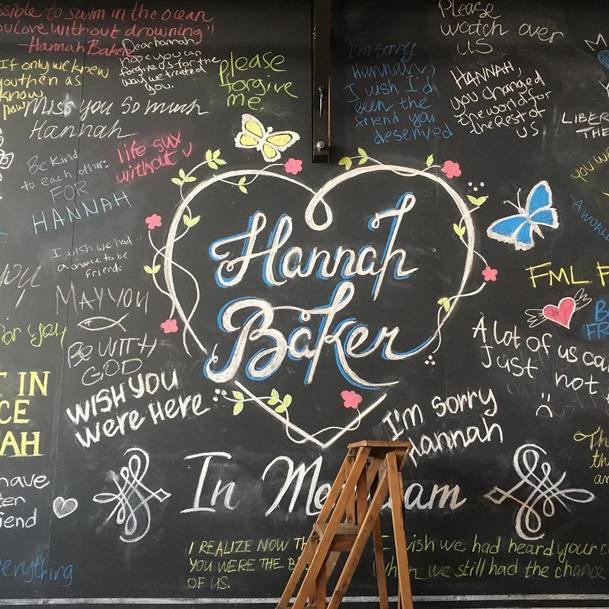 ssible to swim in the ocean
ou love without drowning"
-Hannah Baker
If only we knew
you then as
know
now
Dear hannah,
hope you can
forgive us for the
way we treated
you.
please
forgive
me.
Miss you so much
Hannah
Be Kind
to each other
FOR
HANNAH
life sux
without u
I wish we had
a chance to be
friends
MAY YOU
BE WITH
GOD
WISH YOU
were Here
I'm sorry
Hannah,
I wish I'd
been the
friend you
deserved
Please
watch over
us
HANNAH,
you changed
the world for
the Rest of
us
LIBER
THE
you w
A WORL
Hannah
Baker
FML F
A lot of us ca
Just not
I'm sorry
Hannah
you
for you
T IN
CE
AH
have
ter
iend
everything
In Mem am
I REALIZE NOW TH
YOU WERE THE B
OF US.
I wish we had heard your c
When we still had the chance